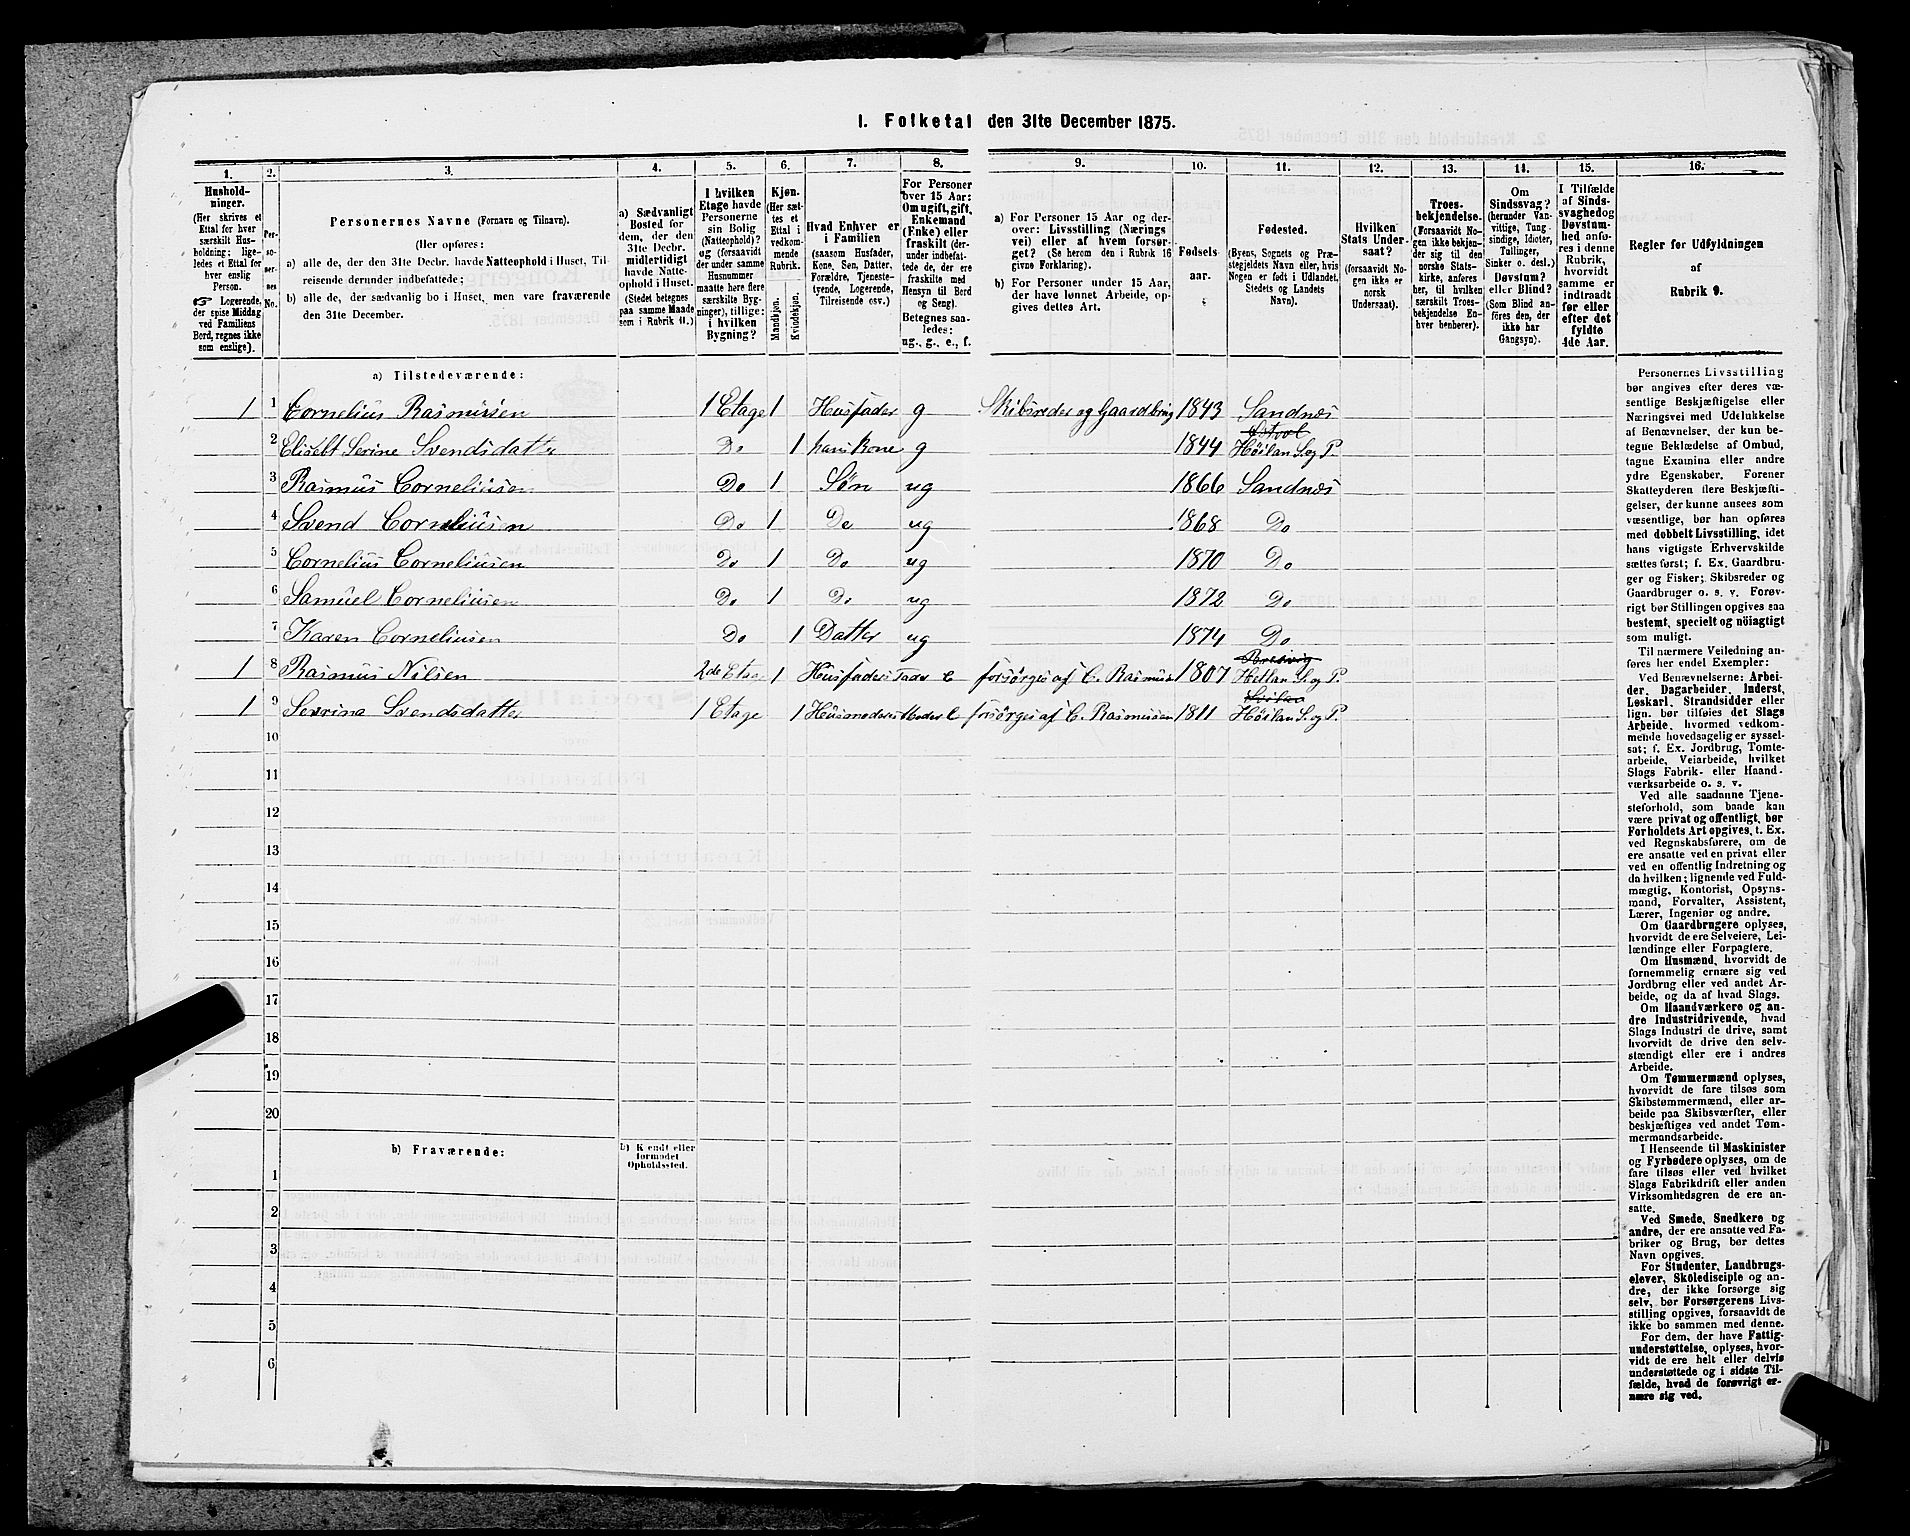 I. Folketal den 31te December 1875.
1. 2. 3. 4. 5. 6. 7. 8. 9. 10. 11. 12. 13. 14. 15. 16.
Hushold-
ninger.
(Her skrives et
Ettal for hver
særskilt Hus-
holdning; lige-
ledes et Ettal for
hver enslig
Person.
☞ Logerende,
der spise Middag
ved Familiens
Bord, regnes ikke
som enslige).
Per-
so-
ner-
nes
No.
Personernes Navne (Fornavn og Tilnavn).
(Her opføres:
a) alle de, der den 31te Decbr. havde Natteophold i Huset, Til-
reisende derunder indbefattede;
b) alle de, der sædvanlig bo i Huset, men vare fraværende
den 31te December.
a) Sædvanligt
Bosted for
dem, der den
31te Decbr.
midlertidigt
havde Natte-
ophold i Huset.
(Stedet betegnes
paa samme Maade
som i Rubrik 11.)
I hvilken
Etage havde
Personerne
sin Bolig
(Natteophold)?
og (forsaavidt
der under samme
Husnummer
maatte høre flere
særskilte Byg-
ninger), tillige:
i hvilken
Bygning?
Kjøn.
(Her sæt-
tes et
Ettal i
vedkom-
mende
Rubrik.
Mandkjøn.
Kvindekjøn.
Hvad Enhver er
i Familien
(saasom Husfader,
Kone, Søn, Datter,
Forældre, Tjeneste-
tyende, Logerende,
Tilreisende osv.)
For Personer
over 15 Aar:
Om ugift, gift,
Enkemand
(Enke) eller
fraskilt (der-
under indbefat-
tede de, der ere
fraskilte med
Hensyn til Bord
og Seng).
Betegnes saa-
ledes:
ug., g., e., f.
a) For Personer 15 Aar og der-
over: Livsstilling (Nærings
vei) eller af hvem forsør-
get? (Se herom den i Rubrik 16
givne Forklaring).
b) For Personer under 15 Aar,
der have lønnet Arbeide, op-
gives dettes Art.
Fødsels-
aar.
Fødested.
(Byens, Sognets og Præ-
stegjeldets Navn eller, hvis
Nogen er født i Udlandet,
Stedets og Landets
Navn).
Hvilken
Stats Under-
saat?
(forsaavidt No-
gen ikke er
norsk
Undersaat).
Troes-
bekjendelse.
(Forsaavidt No-
gen ikke bekjen-
der sig til den
norske Stats-
kirke, anføres
her, til hvilken
særskilt Troes-
bekjendelse En-
hver henhører).
Om
Sindssvag?
(herunder Van-
vittige, Tung-
sindige, Idioter,
Tullinger,
Sinker o. desl.)
Døvstum?
eller Blind?
(Som Blind an-
føres den, der
ikke har
Gangsyn).
I Tilfælde
af Sinds-
svaghed og
Døvstum-
hed anfø-
res i denne
Rubrik,
hvorvidt
samme er
indtraadt
før eller
efter det
fyldte
4de Aar.
Regler for Udfyldningen
af
Rubrik 9.
a) Tilstedeværende:
1 1 Cornelius Rasmussen 1 Etage 1 Husfader g Skibsreder og Gaardbrug 1843 Sandnæs
2 Elisebt Serine Svendsdatter Do 1 hans Kone g 1844 Høilan S. og P.
3 Rasmus Corneliusen Do 1 Søn ug 1866 Sandnæs
4 Svend Corneliusen Do 1 Do ug 1868 Do
5 Cornelius Corneliusen Do 1 Do ug 1870 Do
6 Samuel Corneliusen Do 1 Do ug 1872 Do
7 Karen Corneliusen Do 1 Datter ug 1874 Do
1 8 Rasmus Nilsen 2de Etage 1 Husfaders Fader E forsörges af C. Rasmussen 1807 Hetlan S. og P.
1 9 Sevrina Svendsdatter 1 Etage 1 Husmoders Moder E forsörges af C. Rasmussen 1811 Høilan S. og P.
10
11
12
13
14
15
16
17
18
19
20
b) Fraværende:
b) Kjendt eller
formodet
Opholdssted.
1
2
3
4
5
6
Personernes Livsstilling
bør angives efter deres væ-
sentlige Beskjæftigelse eller
Næringsvei med Udelukkelse
af Benævnelser, der kun be-
tegne Beklædelse af Ombud,
tagne Examina eller andre
ydre Egenskaber. Forener
Skatteyderen flere Beskjæfti-
gelser, der kunne ansees som
væsentlige, bør han opføres
med dobbelt Livsstilling, idet
hans vigtigste Erhvervskilde
sættes først; f. Ex. Gaardbru-
ger og Fisker; Skibsreder og
Gaardbruger o. s. v. Forøv-
rigt bør Stillingen opgives saa
bestemt, specielt og nöiagtigt
som muligt.
Til nærmere Veiledning an-
føres her endel Exempler:
Ved Benævnelserne: Arbei-
der, Dagarbeider, Inderst,
Løskarl, Strandsidder eller
lign. bør tilføies det Slags
Arbeide, hvormed vedkom-
mende hovedsagelig er syssel-
sat; f. Ex. Jordbrug, Tomte-
arbeide, Veiarbeide, hvilket
Slags Fabrik- eller Haand-
værksarbeide o. s. v.
Ved alle saadanne Tjene-
steforhold, som baade kan
være privat og offentligt, bør
Forholdets Art opgives, t. Ex.
ved Regnskabsførere, om de
ere ansatte ved en privat eller
ved en offentlig Indretning og
da hvilken; lignende ved Fuld-
mægtig, Kontorist, Opsyns-
mand, Forvalter, Assistent,
Lærer, Ingeniør og andre.
Om Gaardbrugere oplyses,
hvorvidt de ere Selveiere, Lei-
lændinge eller Forpagtere.
Om Husmænd, hvorvidt de
fornemmelig ernære sig ved
Jordbrug eller ved andet Ar-
beide, og da af hvad Slags.
Om Haandværkere og an-
dre Industridrivende, hvad
Slags Industri de drive, samt
hvorvidt de drive den selv-
stændigt eller ere i andres
Arbeide.
Om Tømmermænd oplyses,
hvorvidt de fare tilsøs som
Skibstømmermænd, eller ar-
beide paa Skibsværfter, eller
beskjæftiges ved andet Tøm-
mermandsarbeide.
I Henseende til Maskinister
og Fyrbødere oplyses, om de
fare tilsøs eller ved hvilket
Slags Fabrikdrift eller anden
Virksomhedsgren de ere an-
satte.
Ved Smede, Snedkere og
andre, der ere ansatte ved Fa-
briker og Brug, bør dettes
Navn opgives.
For Studenter, Landbrugs-
elever, Skoledisciple og an-
dre, der ikke forsørge sig
selv, bør Forsørgerens Livs-
stilling opgives, forsaavidt de
ikke bo sammen med denne.
For dem, der have Fattig-
understøttelse, oplyses, hvor-
vidt de ere helt eller delvis
understøttede og i sidste Til-
fælde, hvad de forøvrigt er-
nære sig ved.